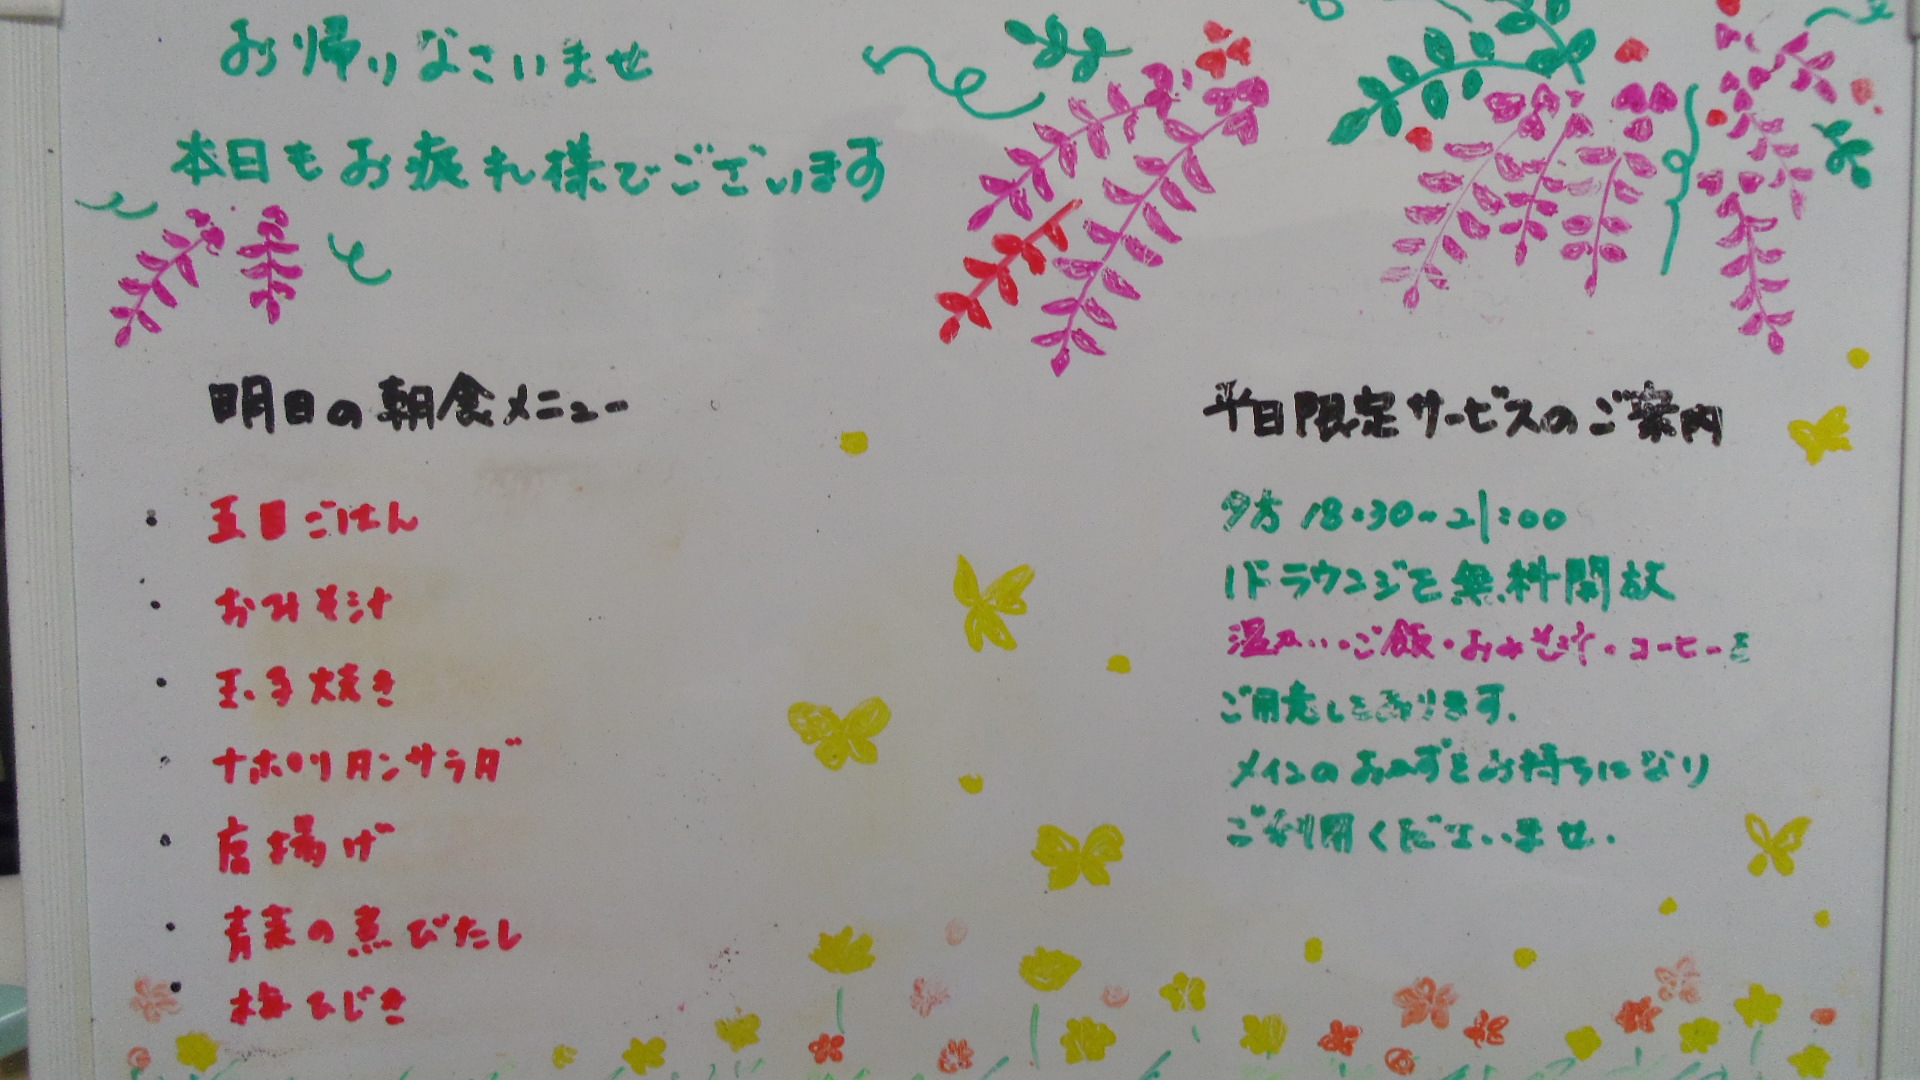 お帰りなさいませ
本日もお疲れ様でございます
明日の朝食メニュー
・五目ごはん
・おみそ汁
・玉子焼き
・ナポリタンサラダ
・唐揚げ
・青菜の煮びたし
・梅ひじき
平日限定サービスのご案内
夕方 18:30~21:00
1Fラウンジを無料開放
温かいご飯・おみそ汁・コーヒーを
ご用意しております。
メインのおかずをお持ちになり
ご利用くださいませ.